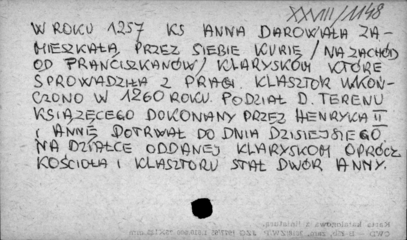 XXVIII/1148
W ROKU 1257 KS ANNA DAROWAŁA ZA-
MIESZKAŁĄ PRZEZ SIEBIE KURIĘ /NA ZACHÓD
OD FRANCISZKANÓW/ KLARYSKOM KTÓRE
SPROWADZIŁA Z PRAGI. KLASZTOR UKOŃ-
CZONO W 1260 ROKU. PODZIAŁ D. TERENU
KSIĄŻĘCEGO DOKONANY PRZEZ HENRYKA II
I ANNĘ DOTRWAŁ DO DNIA DZISIEJSZEGO
NA DZIAŁCE ODDANEJ KLARYSKOM OPRÓCZ
KOŚCIOŁA I KLASZTORU STAŁ DWÓR ANNY.